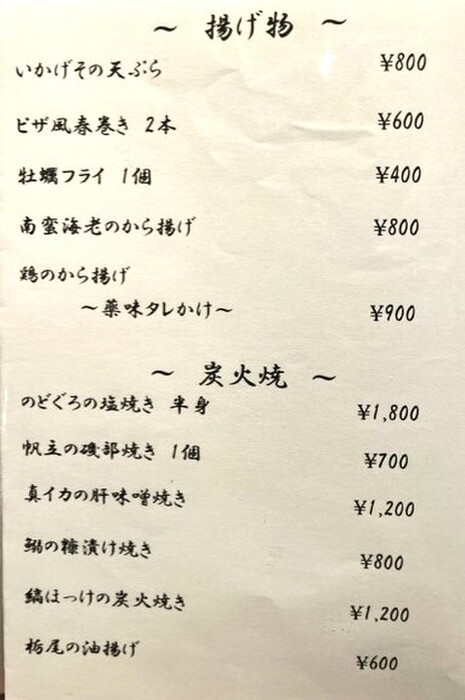 ～ 揚げ物 ～
いかげその天ぷら ¥800
ピザ風春巻き 2本 ¥600
牡蠣フライ 1個 ¥400
南蛮海老のから揚げ ¥800
鶏のから揚げ
～薬味タレかけ～ ¥900
～ 炭火焼 ～
のどぐろの塩焼き 半身 ¥1,800
帆立の磯部焼き 1個 ¥700
真イカの肝味噌焼き ¥1,200
鰯の糠漬け焼き ¥800
縞ほっけの炭火焼き ¥1,200
栃尾の油揚げ ¥600